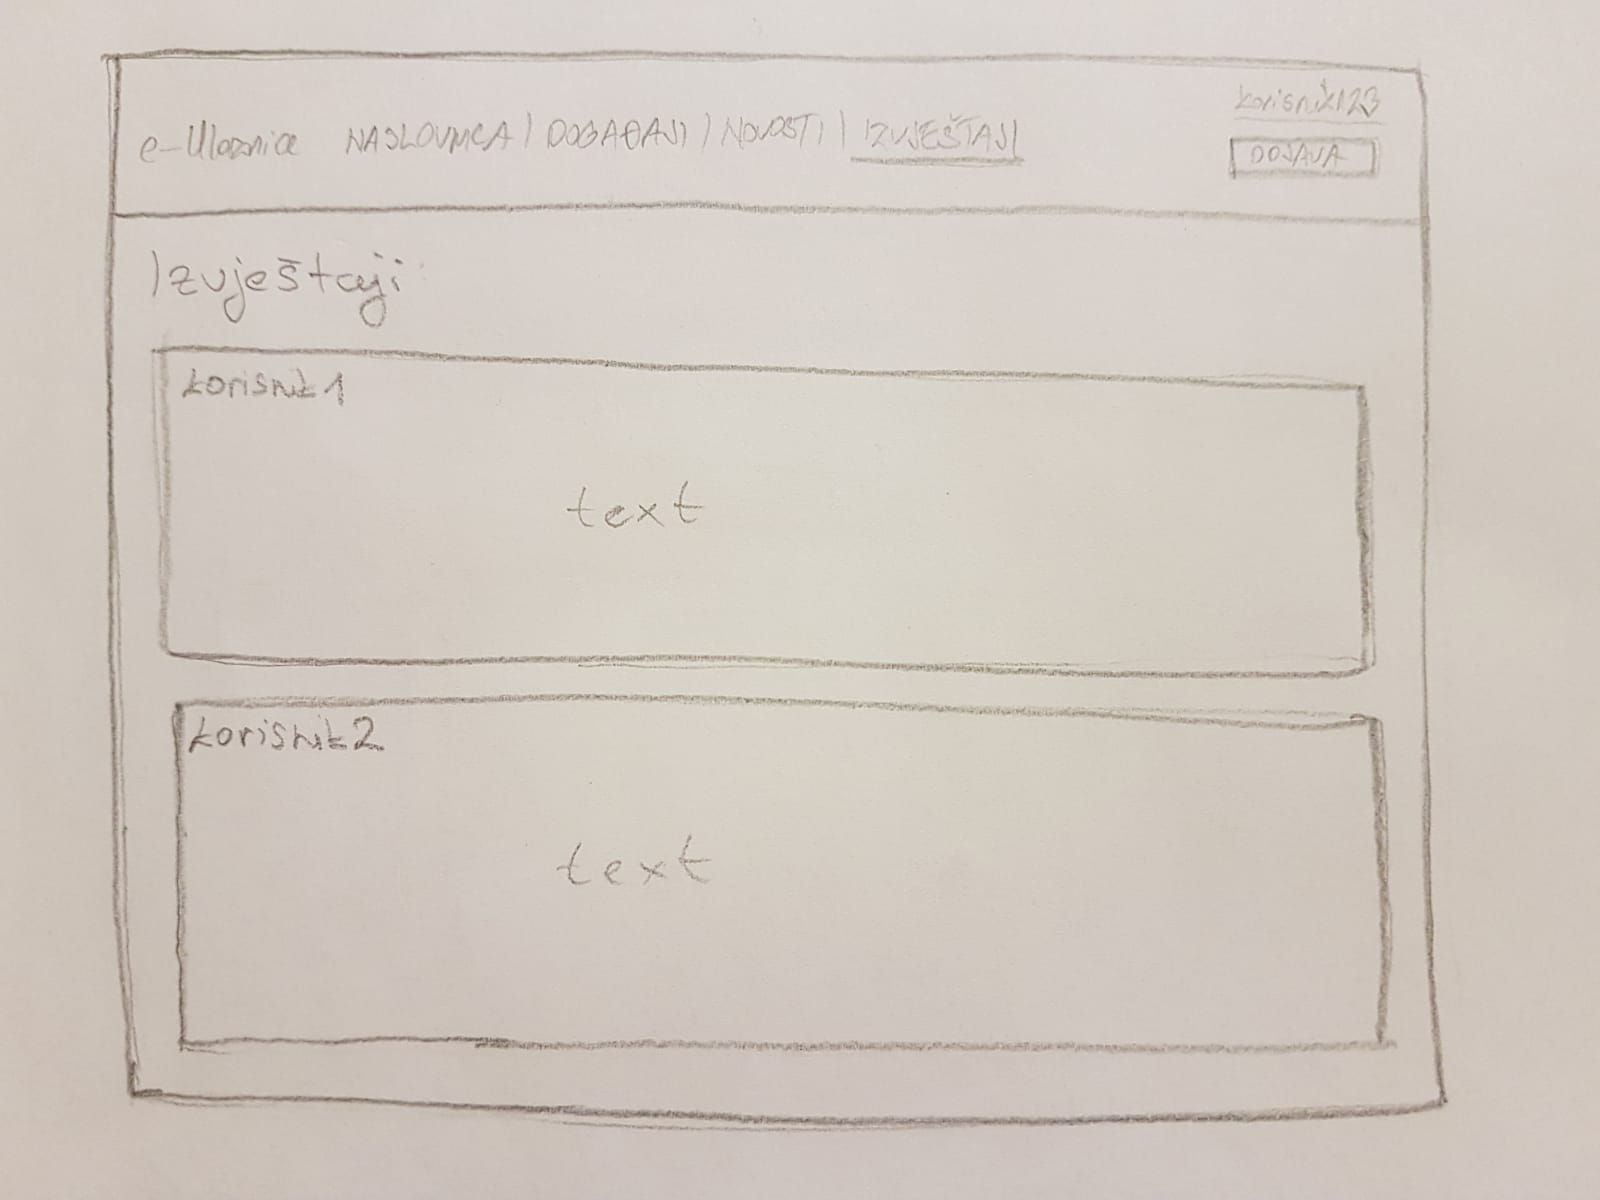 e-Ulaznice NASLOVNICA | DOGAĐAJI | NOVOSTI | IZVJEŠTAJI
korisnik123
DOJAVA
Izvještaji
korisnik1
text
korisnik2
text